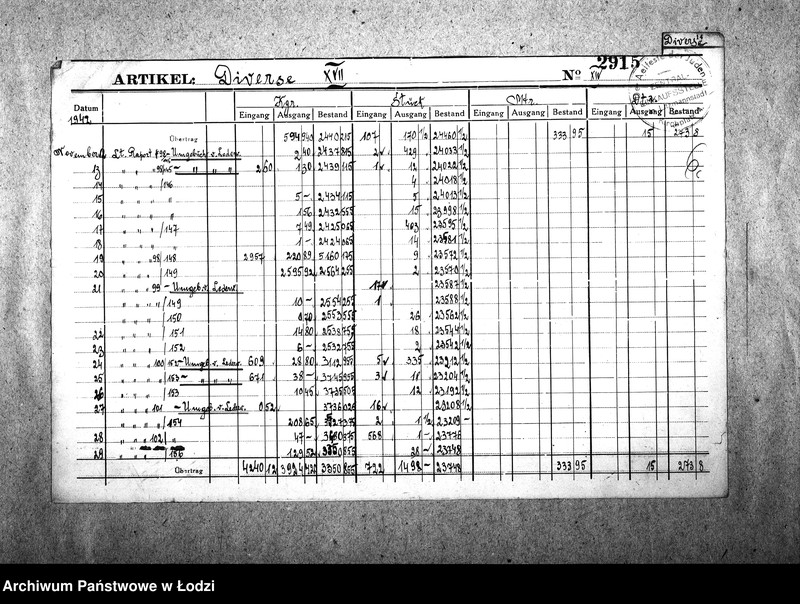 Diverse
ARTIKEL: Diverse XVII No XIV 2915
Datum 1942 Kgr. Stück Mtr. Dtz.
Eingang Ausgang Bestand Eingang Ausgang Bestand Eingang Ausgang Bestand Eingang Ausgang Bestand
Übertrag 594 940 2440 215 107 170 1/2 24460 1/2 333 95 15 273 8
November Lt. Raport 2 40 2437 815 429 24033 1/2
13 " " " 260 1 30 2439 115 1 12 24022 1/2
14 " " " /146 4 24018 1/2
15 " " " " 5 - 2434 115 5 24013 1/2
16 " " " " 1 56 2432 555 15 23998 1/2
17 " " " /147 7 49 2425 065 403 23595 1/2
18 " " " " 1 - 2424 065 14 23581 1/2
19 " " " 98/148 2957 220 89 5160 175 9 23572 1/2
20 " " " /149 2595 92 2564 255 2 23570 1/2
21 " " " 99 - Umgeb. v. Leder 17 23587 1/2
" " " /149 10 - 2554 255 1 23588 1/2
" " " /150 0 70 2553 555 26 23562 1/2
22 " " " /151 14 80 2538 755 18 23544 1/2
23 " " " /152 6 - 2532 755 2 23542 1/2
24 " " " 100/152 - Umgeb. v. Leder 609 28 80 3112 955 5 335 23212 1/2
25 " " " /153 - " " " 671 38 - 3745 955 3 11 23204 1/2
26 " " " /153 10 45 3735 505 12 23192 1/2
27 " " " 101 - Umgeb. v. Leder 0 52 3736 025 16 23208 1/2
" " " /154 208 65 3527 375 2 1 1/2 23209 -
28 " " " 102/ " 47 - 3480 375 568 1 - 23776
29 " " " /156 129 52 3350 855 28 - 23748
Übertrag 4240 12 3924 3350 855 722 1498 - 23748 333 95 15 273 8
Archiwum Państwowe w Łodzi